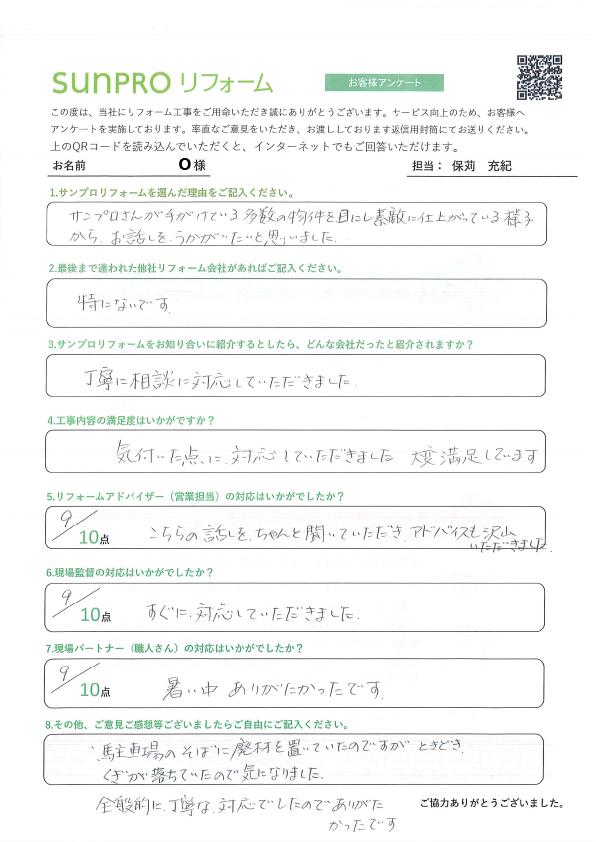 SUNPRO リフォーム
お客様アンケート
この度は、当社にリフォーム工事をご用命いただき誠にありがとうございます。サービス向上のため、お客様へ
アンケートを実施しております。率直なご意見をいただき、お渡ししております返信用封筒にてお送りください。
上のQRコードを読み込んでいただくと、インターネットでもご回答いただけます。
お名前 O 様 担当： 保苅 充紀
1.サンプロリフォームを選んだ理由をご記入ください。
サンプロさんが手がけている多数の物件を目にし素敵に仕上がっている様子
から、お話しをうかがいたいと思いました。
2.最後まで迷われた他社リフォーム会社があればご記入ください。
特にないです。
3.サンプロリフォームをお知り合いに紹介するとしたら、どんな会社だったと紹介されますか？
丁寧に相談に対応していただきました。
4.工事内容の満足度はいかがですか？
気付いた点に、対応していただきました 大変満足しています
5.リフォームアドバイザー（営業担当）の対応はいかがでしたか？
9／10点 こちらの話しを、ちゃんと聞いていただき、アドバイスも沢山
いただきました。
6.現場監督の対応はいかがでしたか？
9／10点 すぐに、対応していただきました。
7.現場パートナー（職人さん）の対応はいかがでしたか？
9／10点 暑い中 ありがたかったです。
8.その他、ご意見ご感想等ございましたらご自由にご記入ください。
駐車場のそばに廃材を置いていたのですが ときどき、
くぎが落ちていたので気になりました。
全般的に、丁寧な、対応でしたので ありがた
かったです
ご協力ありがとうございました。